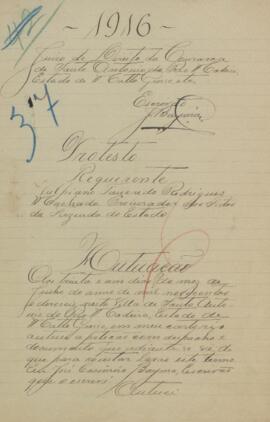 1916
Juizo de Direito da Comarca
de Santo Antonio do Rio Madeira
Estado de Matto Grosso
Escrivão
37
Protesto
Requerente
Ulpiano Rodrigues
Machado Procurador dos Feitos
da Fazenda do Estado
Autuação
Aos trinta e um dias do mez de
Junho do anno de mil novecentos
e dezeseis, nesta Villa de Santo Anto
nio do Rio Madeira, Estado de
Matto Grosso, em meu cartorio
autuei a petição com despacho e
documento que adiante se vê
do que para constar lavro este termo
Eu, José Escrivão
que o escrevi
Autuei